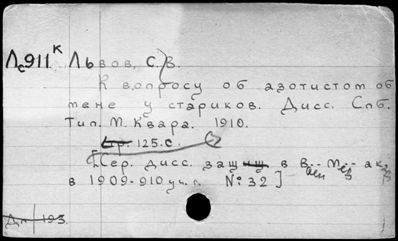 Лс911к Львов, С. В.
К вопросу об азотистом об
мене у стариков. Дисс. Спб.
Тип. М. Квара. 1910.
125 с.
[Сер. дисс. защ в В.-Мед ак.
в 1909-910 уч. г. №: 32]
Дп 193